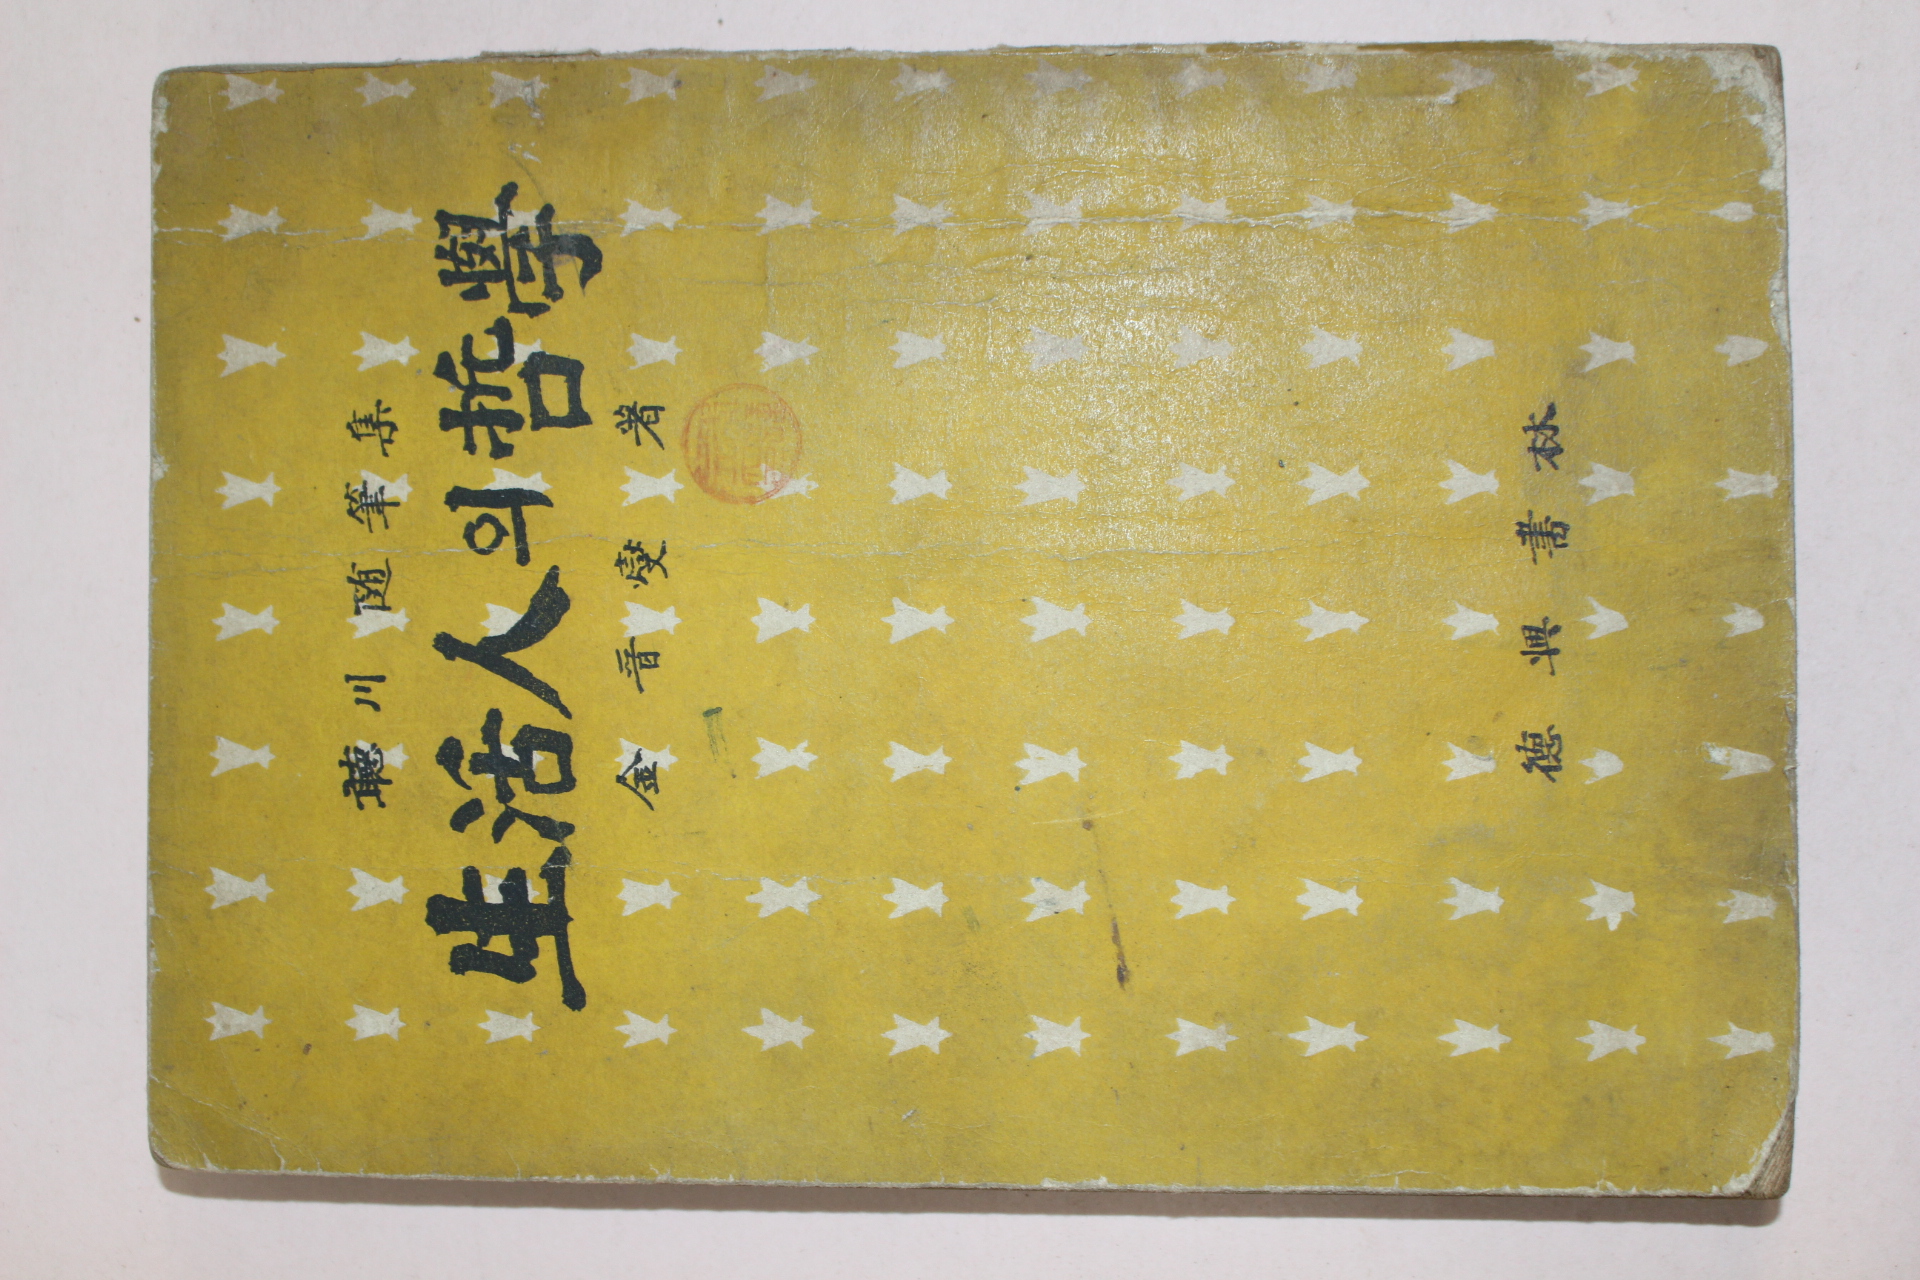 聽川随筆集
生活人의哲學
金晉燮著
德興書林